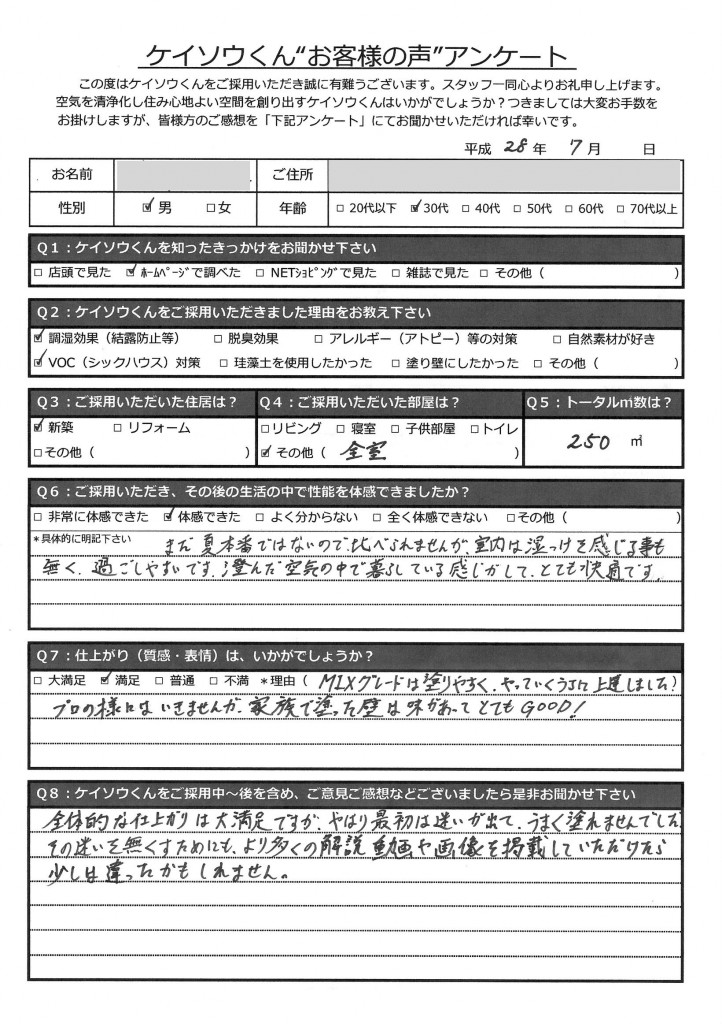 ケイソウくん“お客様の声”アンケート
この度はケイソウくんをご採用いただき誠に有難うございます。スタッフ一同心よりお礼申し上げます。
空気を清浄化し住み心地よい空間を創り出すケイソウくんはいかがでしょうか?つきましては大変お手数を
お掛けしますが、皆様方のご感想を「下記アンケート」にてお聞かせいただければ幸いです。
平成 28 年 7 月 日
お名前 ご住所
性別 ☑男 □女 年齢 □20代以下 ☑30代 □40代 □50代 □60代 □70代以上
Q1:ケイソウくんを知ったきっかけをお聞かせ下さい
□店頭で見た ☑ホームページで調べた □NETショピングで見た □雑誌で見た □その他( )
Q2:ケイソウくんをご採用いただきました理由をお教え下さい
☑調湿効果(結露防止等) □脱臭効果 □アレルギー(アトピー)等の対策 □自然素材が好き
☑VOC(シックハウス)対策 □珪藻土を使用したかった □塗り壁にしたかった □その他( )
Q3:ご採用いただいた住居は? Q4:ご採用いただいた部屋は? Q5:トータル㎡数は?
☑新築 □リフォーム □リビング □寝室 □子供部屋 □トイレ 250 ㎡
□その他( ) ☑その他( 全室 )
Q6:ご採用いただき、その後の生活の中で性能を体感できましたか?
□非常に体感できた ☑体感できた □よく分からない □全く体感できない □その他( )
*具体的に明記下さい まだ夏本番ではないので比べられませんが、室内は湿っけを感じる事も
無く、過ごしやすいです。澄んだ空気の中で暮らしている感じがして、とても快適です。
Q7:仕上がり(質感・表情)は、いかがでしょうか?
□大満足 ☑満足 □普通 □不満 *理由( MIXグレードは塗りやすく、やっていくうちに上達しました!
プロの様にはいきませんが、家族で塗った壁は味があってとてもGOOD!
Q8:ケイソウくんをご採用中〜後を含め、ご意見ご感想などございましたら是非お聞かせ下さい
全体的な仕上がりは大満足ですが、やはり最初は迷いが出て、うまく塗れませんでした。
その迷いを無くすためにも、より多くの解説動画や画像を掲載していただけたら
少しは違ったかもしれません。